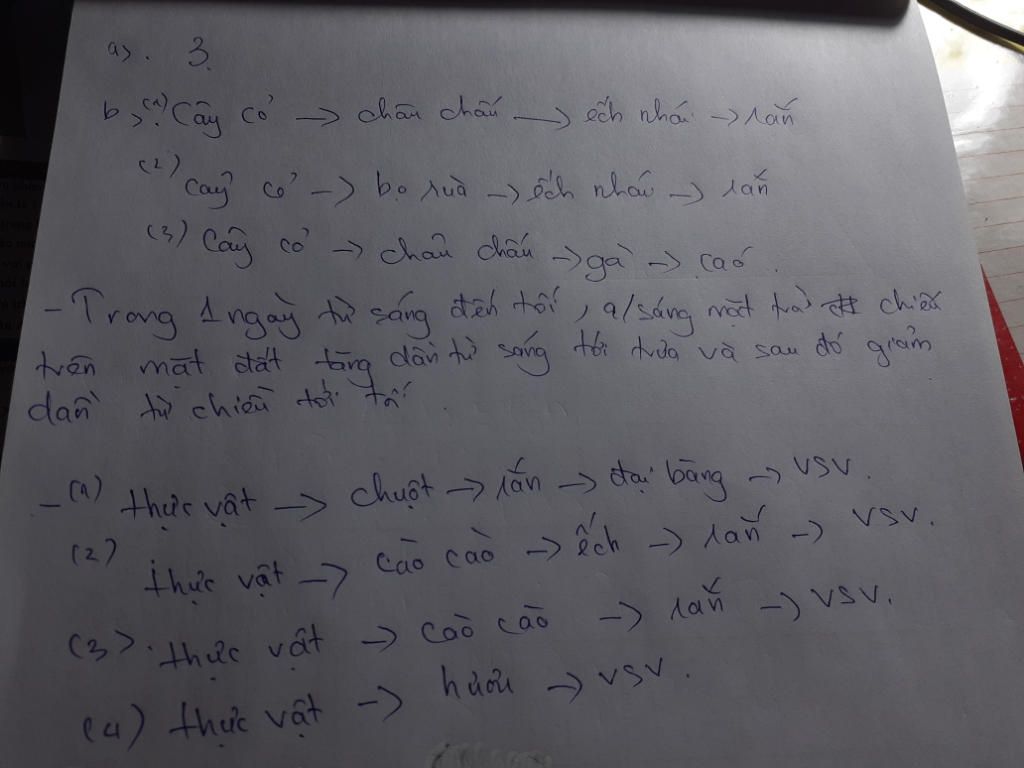 a). 3.
b>. (1) Cây cỏ → châu chấu → ếch nhái → rắn
(2) cây cỏ → bọ rùa → ếch nhái → rắn
(3) Cây cỏ → châu chấu → gà → cáo.
- Trong 1 ngày từ sáng đến tối, a/sáng mặt trời chiếu
trên mặt đất tăng dần từ sáng tới trưa và sau đó giảm
dần từ chiều tới tối.
- (1) thực vật → chuột → rắn → đại bàng → VSV.
(2) thực vật → cào cào → ếch → rắn → VSV.
(3). thực vật → cào cào → rắn → VSV.
(4) thực vật → hươu → VSV.